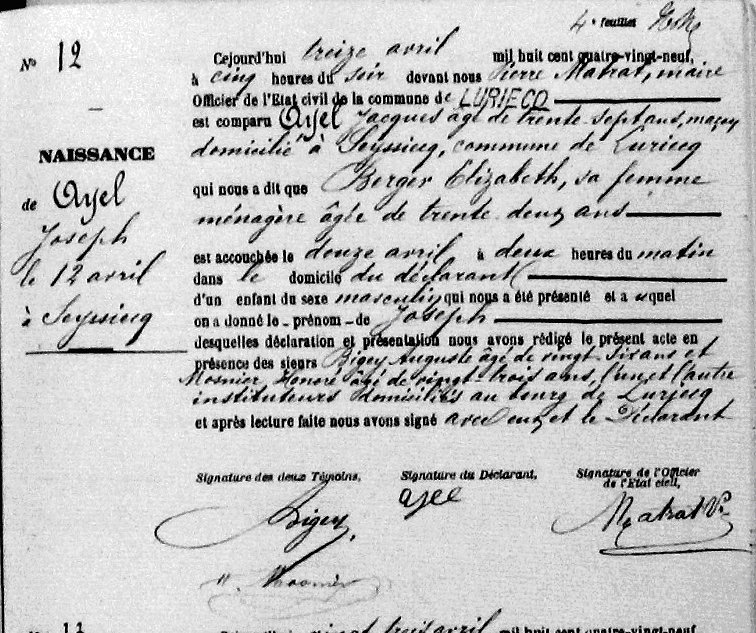 4e feuillet
No 12
NAISSANCE
de Ayel
Joseph
le 12 avril
à Seyssiecq
Cejourd'hui treize avril mil huit cent quatre-vingt-neuf,
à cinq heures du soir devant nous Pierre Matrat, maire
Officier de l'Etat civil de la commune de LURIECQ
est comparu Ayel Jacques âgé de trente-sept ans, maçon
domicilié à Seyssiecq, commune de Luriecq
qui nous a dit que Berger Elizabeth, sa femme
ménagère âgée de trente-deux ans
est accouchée le douze avril à deux heures du matin
dans le domicile du déclarant
d'un enfant du sexe masculin qui nous a été présenté et auquel
on a donné le prénom de Joseph
desquelles déclaration et présentation nous avons rédigé le présent acte en
présence des sieurs Bigey Auguste âgé de vingt-six ans et
Mosnier Honoré âgé de vingt-trois ans, l'un et l'autre
instituteurs domiciliés au bourg de Luriecq
et après lecture faite nous avons signé avec eux et le Déclarant
Signature des deux Témoins, Signature du Déclarant, Signature de l'Officier
de l'Etat civil,
Bigey
ayel
Matrat
H. Mosnier
No 13
vingt trois avril mil huit cent quatre-vingt-neuf